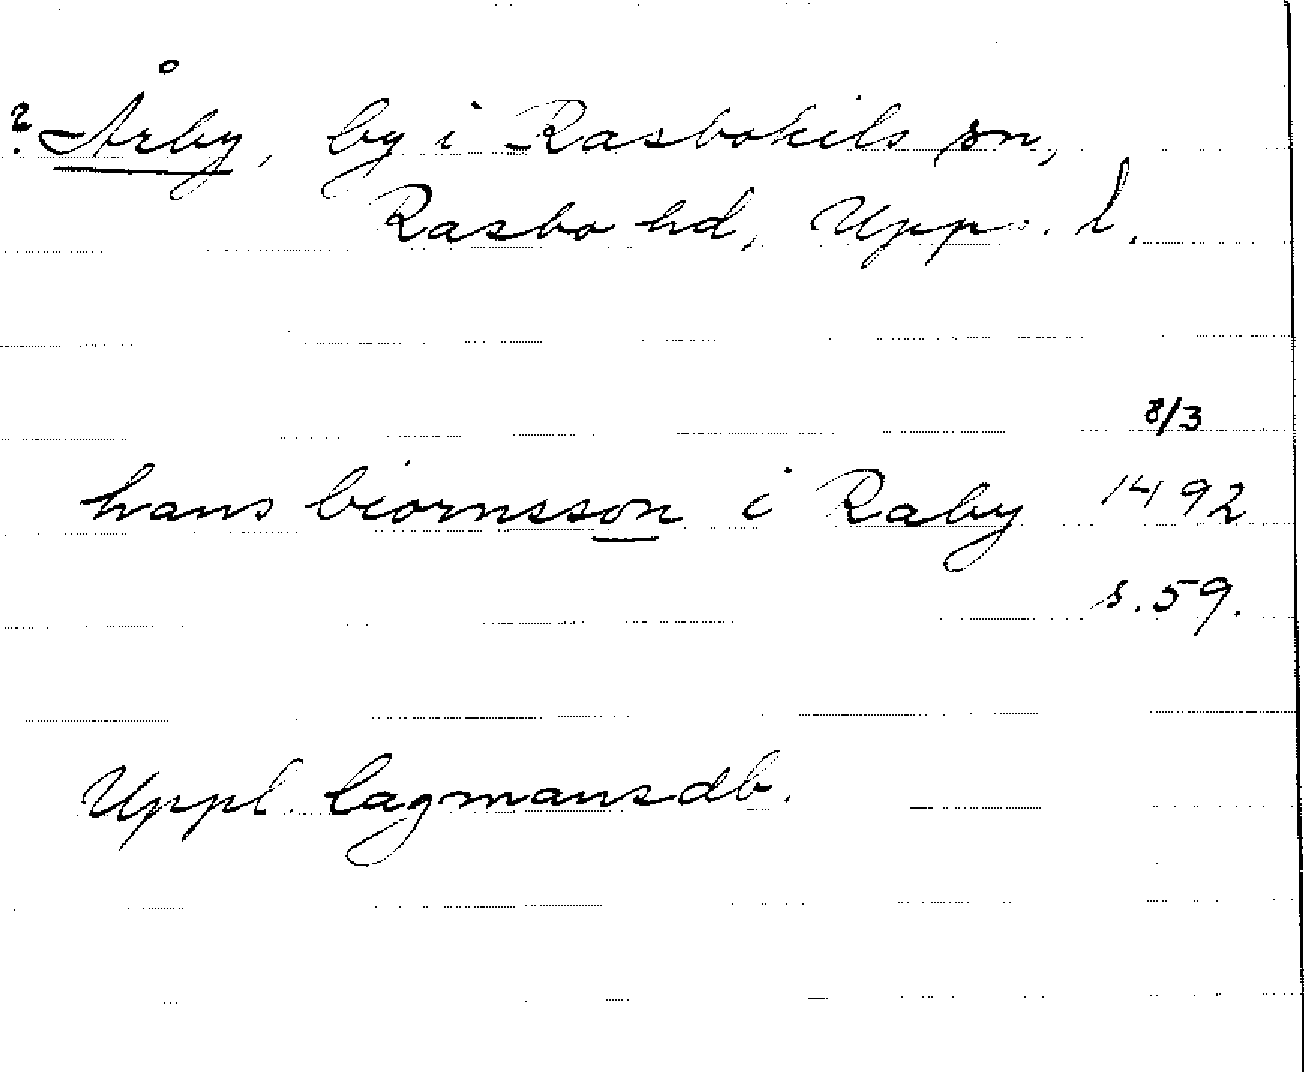 ? Årby, by i Rasbokils sn,
Rasbo hd, Upps. l.
8/3
hans biornsson i Raby 1492
s. 59.
Uppl. lagmansdb.